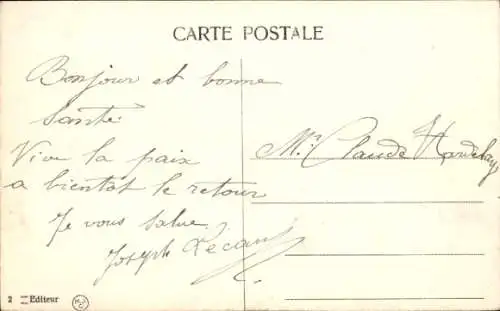 CARTE POSTALE
Bonjour et bonne
santé
Vive la paix
a bientot le retour
Je vous salue
Joseph
Mr. Claude
2 Editeur